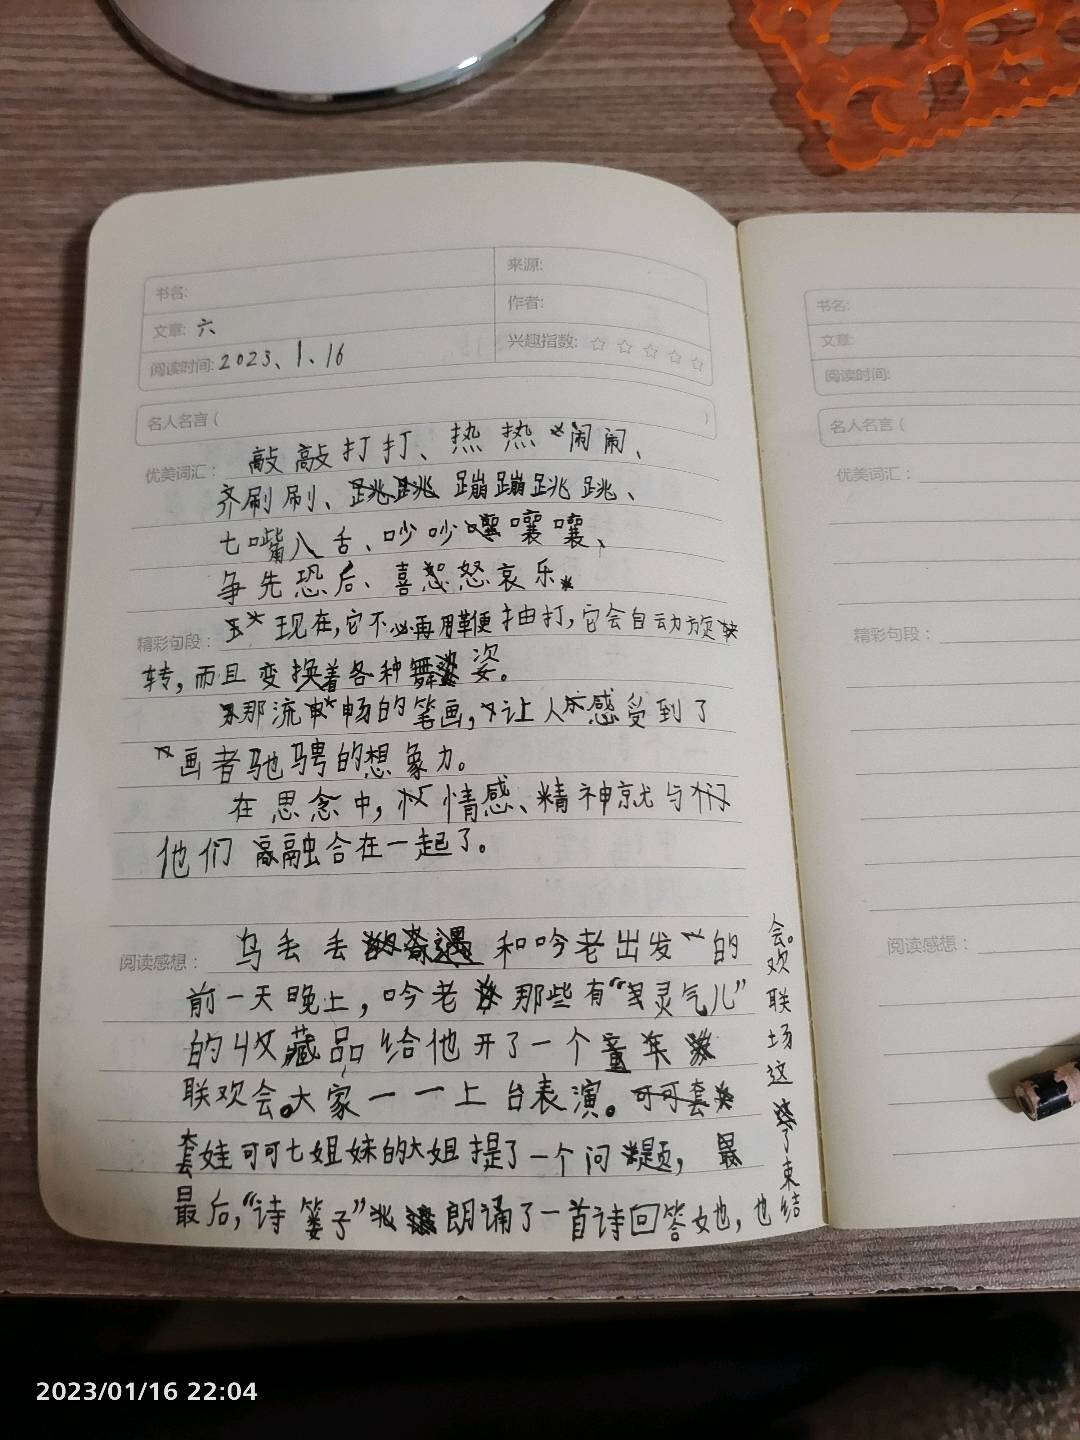 书名:
来源:
作者:
文章: 六
兴趣指数: ☆ ☆ ☆ ☆ ☆
阅读时间: 2023、1、16
名人名言 ( )
优美词汇: 敲敲打打、热热闹闹、
齐刷刷、蹦蹦跳跳、
七嘴八舌、吵吵嚷嚷、
争先恐后、喜怒哀乐。
精彩句段: 现在,它不必再用鞭抽打,它会自动旋
转,而且变换着各种舞姿。
那流畅的笔画,让人感受到了
画者驰骋的想象力。
在思念中,情感、精神就与
他们融合在一起了。
阅读感想: 乌丢丢和吟老出发的
前一天晚上,吟老那些有“灵气儿”
的收藏品给他开了一个童年
联欢会。大家一一上台表演。
套娃可可七姐妹的大姐提了一个问题,
最后,“诗篓子”朗诵了一首诗回答她,也结
束了这场联欢会。
书名:
文章:
阅读时间:
名人名言 (
优美词汇:
精彩句段:
阅读感想:
2023/01/16 22:04